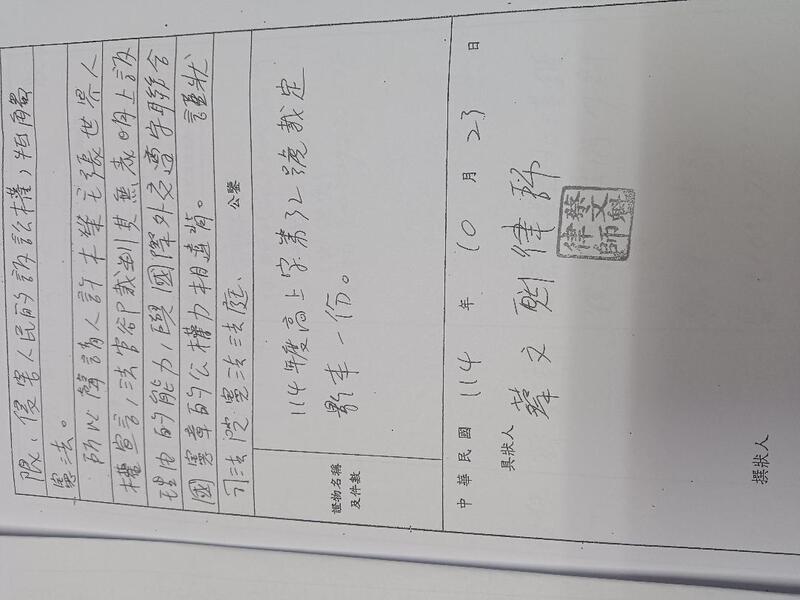 限，侵害人民的訴訟權，牴觸
憲法。
所以聲請人計本舉主張世界人
權宣言，法官卻裁判其無表明上訴
理由的能力，與國際外交遵守聯合
國憲章的公權力相違背。 謹狀
司法院憲法法庭、 公鑒
證物名稱
及件數
114年度高上字第32號裁定
影本一份。
中華民國 114 年 10 月 23 日
具狀人 蔡文魁律師
蔡文魁
律師
撰狀人